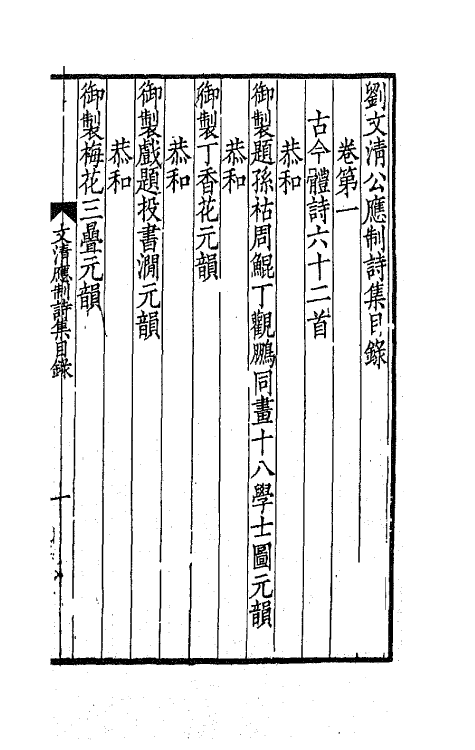 劉文清公應制詩集目錄
卷第一
古今體詩六十二首
恭和
御製題孫祜周鯤丁觀鵬同畫十八學士圖元韻
恭和
御製丁香花元韻
恭和
御製戲題投書澗元韻
恭和
御製梅花三疊元韻
文清應制詩集目錄 一